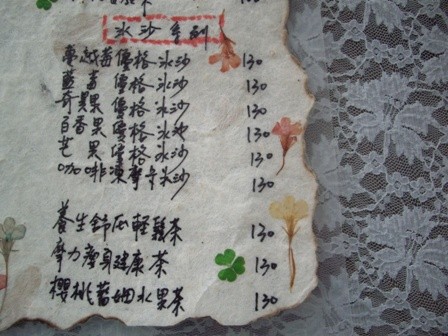 冰沙系列
蔓越莓優格冰沙 130
藍莓優格冰沙 130
奇異果優格冰沙 130
百香果優格冰沙 130
芒果優格冰沙 130
咖啡凍摩卡冰沙 130
養生舒压輕鬆茶 130
摩力瘦身健康茶 130
櫻桃蕾姆水果茶 130